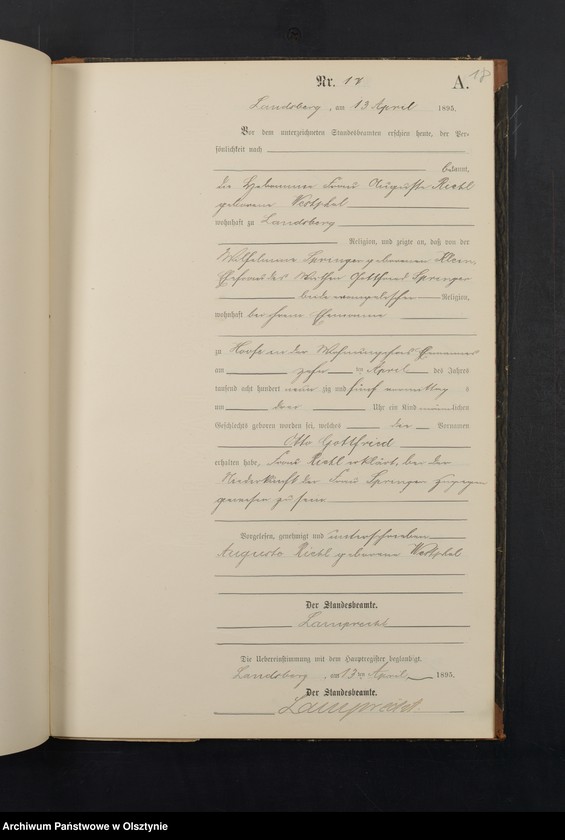 Nr. 18
A.
18
Landsberg, am 13 April 1895.
Vor dem unterzeichneten Standesbeamten erschien heute, der Per-
sönlichkeit nach
kannt,
die Hebamme Frau Auguste Riehl
geborene Westphal
wohnhaft zu Landsberg
Religion, und zeigte an, daß von der
Wilhelmine Springer geborenen Klein
Ehefrau des Gottfried Springer
beide evangelischer Religion,
wohnhaft bei ihrem Ehemanne
zu Hoofe in der Wohnung ihres Ehemannes
am zehn ten April des Jahres
tausend acht hundert neun zig und fünf vormittag s
um drei Uhr ein Kind männlichen
Geschlechts geboren worden sei, welches die Vornamen
Otto Gottfried
erhalten habe, Frau Riehl erklärt, bei der
Niederkunft der Frau Springer zugegen
gewesen zu sein
Vorgelesen, genehmigt und unterschrieben
Auguste Riehl geborene Westphal
Der Standesbeamte.
Lamprecht
Die Uebereinstimmung mit dem Hauptregister beglaubigt.
Landsberg, am 13 ten April 1895.
Der Standesbeamte.
Lamprecht
Archiwum Państwowe w Olsztynie